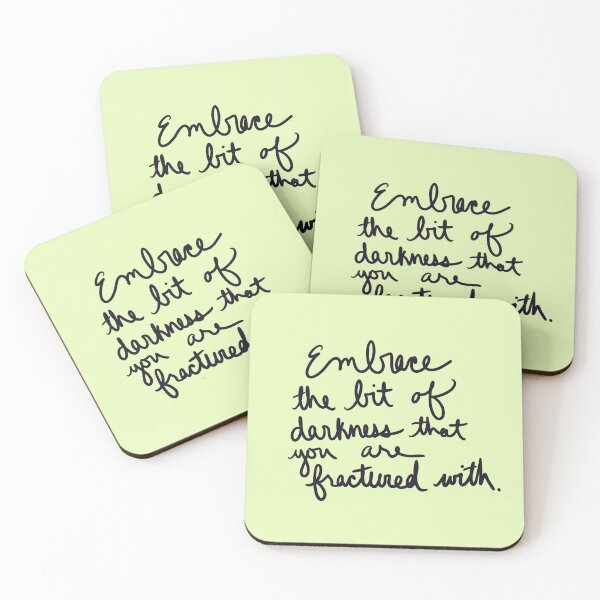 Embrace
the bit of
that
Embrace
the bit of
darkness that
you are
fractured with.
Embrace
the bit of
darkness that
you are
fractured
Embrace
the bit of
darkness that
you are
fractured with.